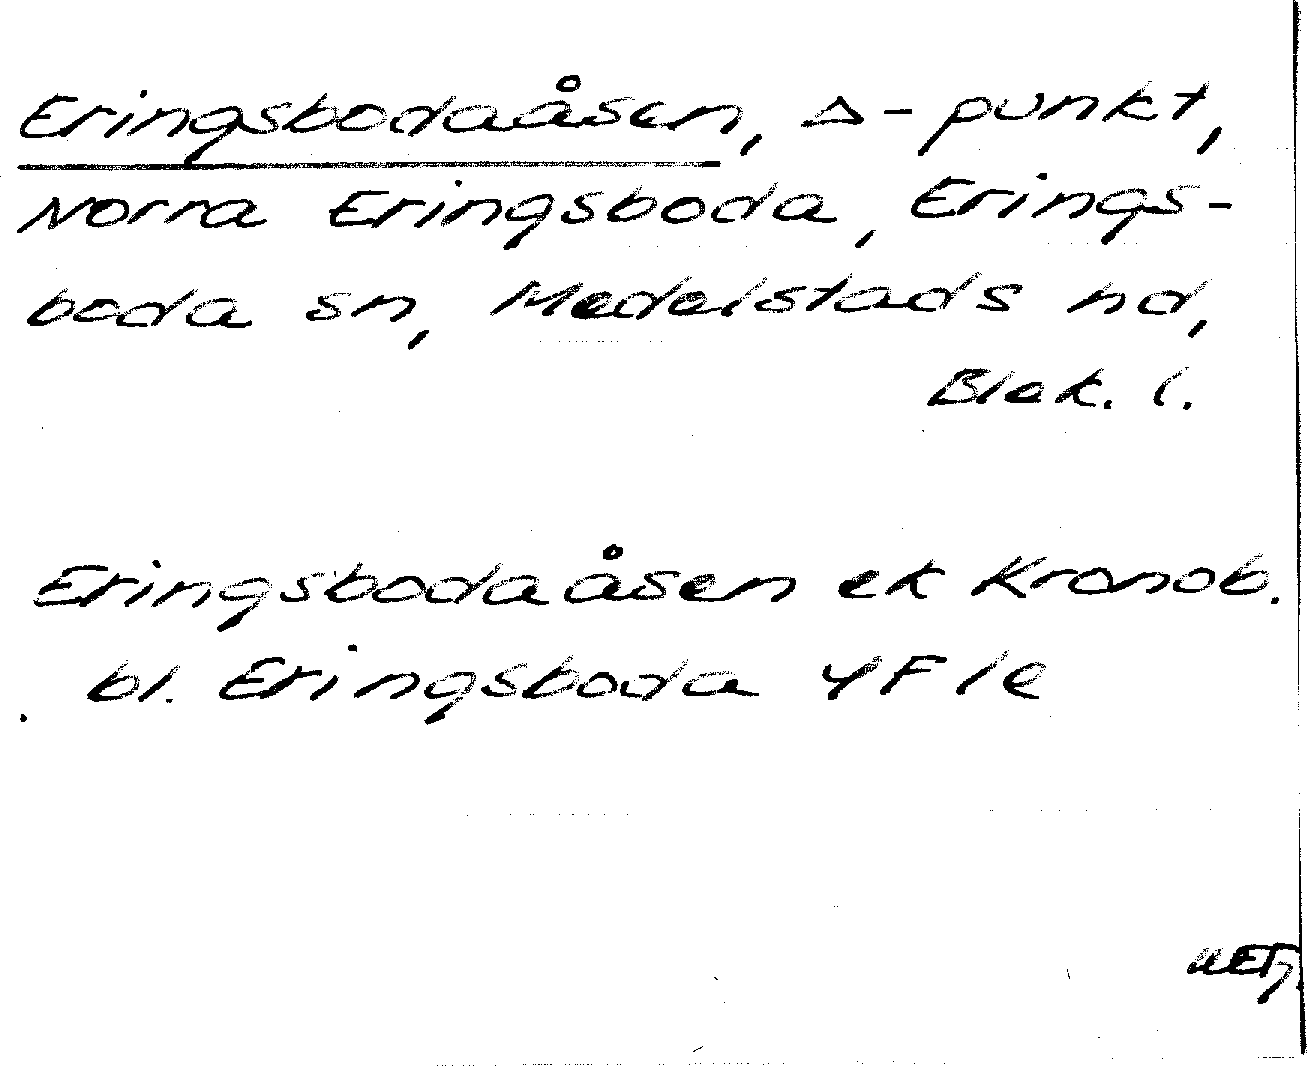 Eringsbodaåsen, Δ-punkt,
Norra Eringsboda, Erings-
boda sn, Medelstads hd,
Blek. l.
Eringsbodaåsen ek Kronob.
bl. Eringsboda 4F 1e